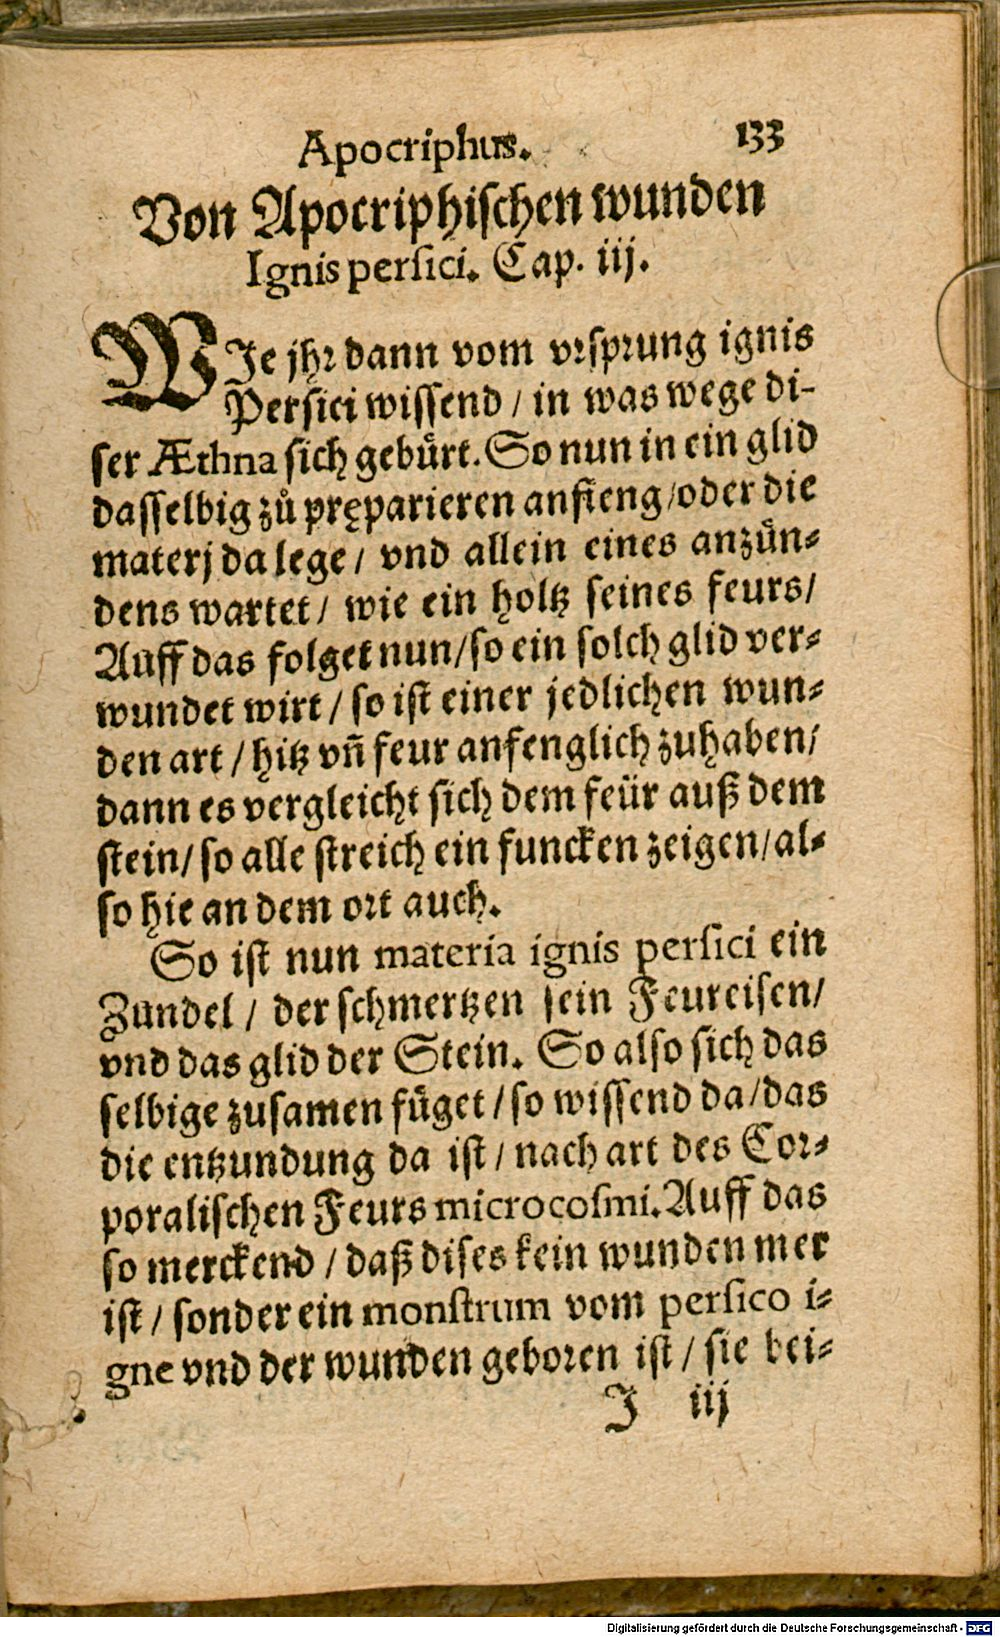 Apocriphus. 133
Von Apocriphischen wunden
Ignis persici. Cap. iij.
WIe jhr dann vom vrsprung ignis
Persici wissend / in was wege di-
ser Æthna sich gebürt. So nun in ein glid
dasselbig zů pręparieren anfieng / oder die
materj da lege / vnd allein eines anzün-
dens wartet / wie ein holtz seines feurs /
Auff das folget nun / so ein solch glid ver-
wundet wirt / so ist einer jedlichen wun-
den art / hitz vñ feur anfenglich zuhaben /
dann es vergleicht sich dem feür auß dem
stein / so alle streich ein funcken zeigen / al-
so hie an dem ort auch.
So ist nun materia ignis persici ein
Zundel / der schmertzen sein Feureisen /
vnd das glid der Stein. So also sich das
selbige zusamen füget / so wissend da / das
die entzundung da ist / nach art des Cor-
poralischen Feurs microcosmi. Auff das
so merckend / daß dises kein wunden mer
ist / sonder ein monstrum vom persico i-
gne vnd der wunden geboren ist / sie bei-
J iij
Digitalisierung gefördert durch die Deutsche Forschungsgemeinschaft - DFG